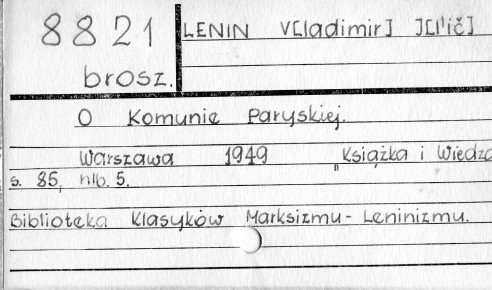 8821
brosz.
LENIN V[ladimir] I[l'ič]
O Komunie Paryskiej.
Warszawa 1949 „Książka i Wiedza
s. 85, nlb. 5.
Biblioteka Klasyków Marksizmu-Leninizmu.